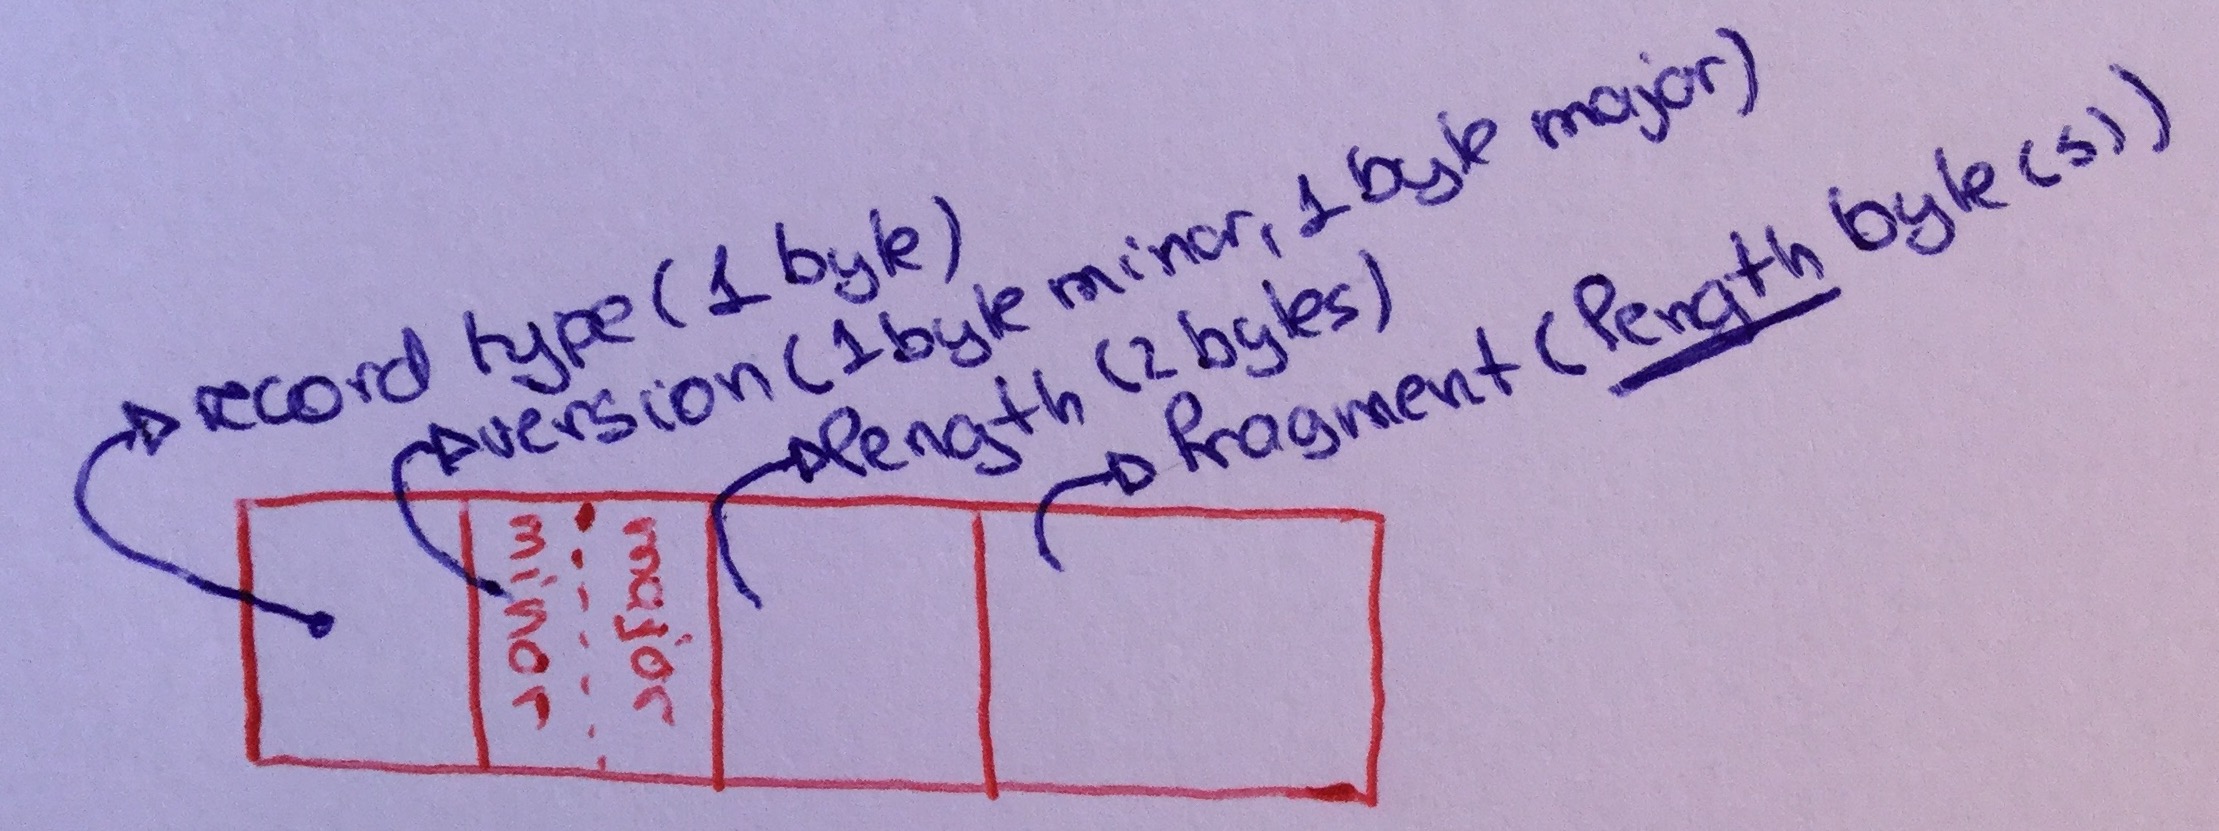 record type (1 byte)
version (1 byte minor, 1 byte major)
length (2 bytes)
fragment (length byte(s))
minor
major